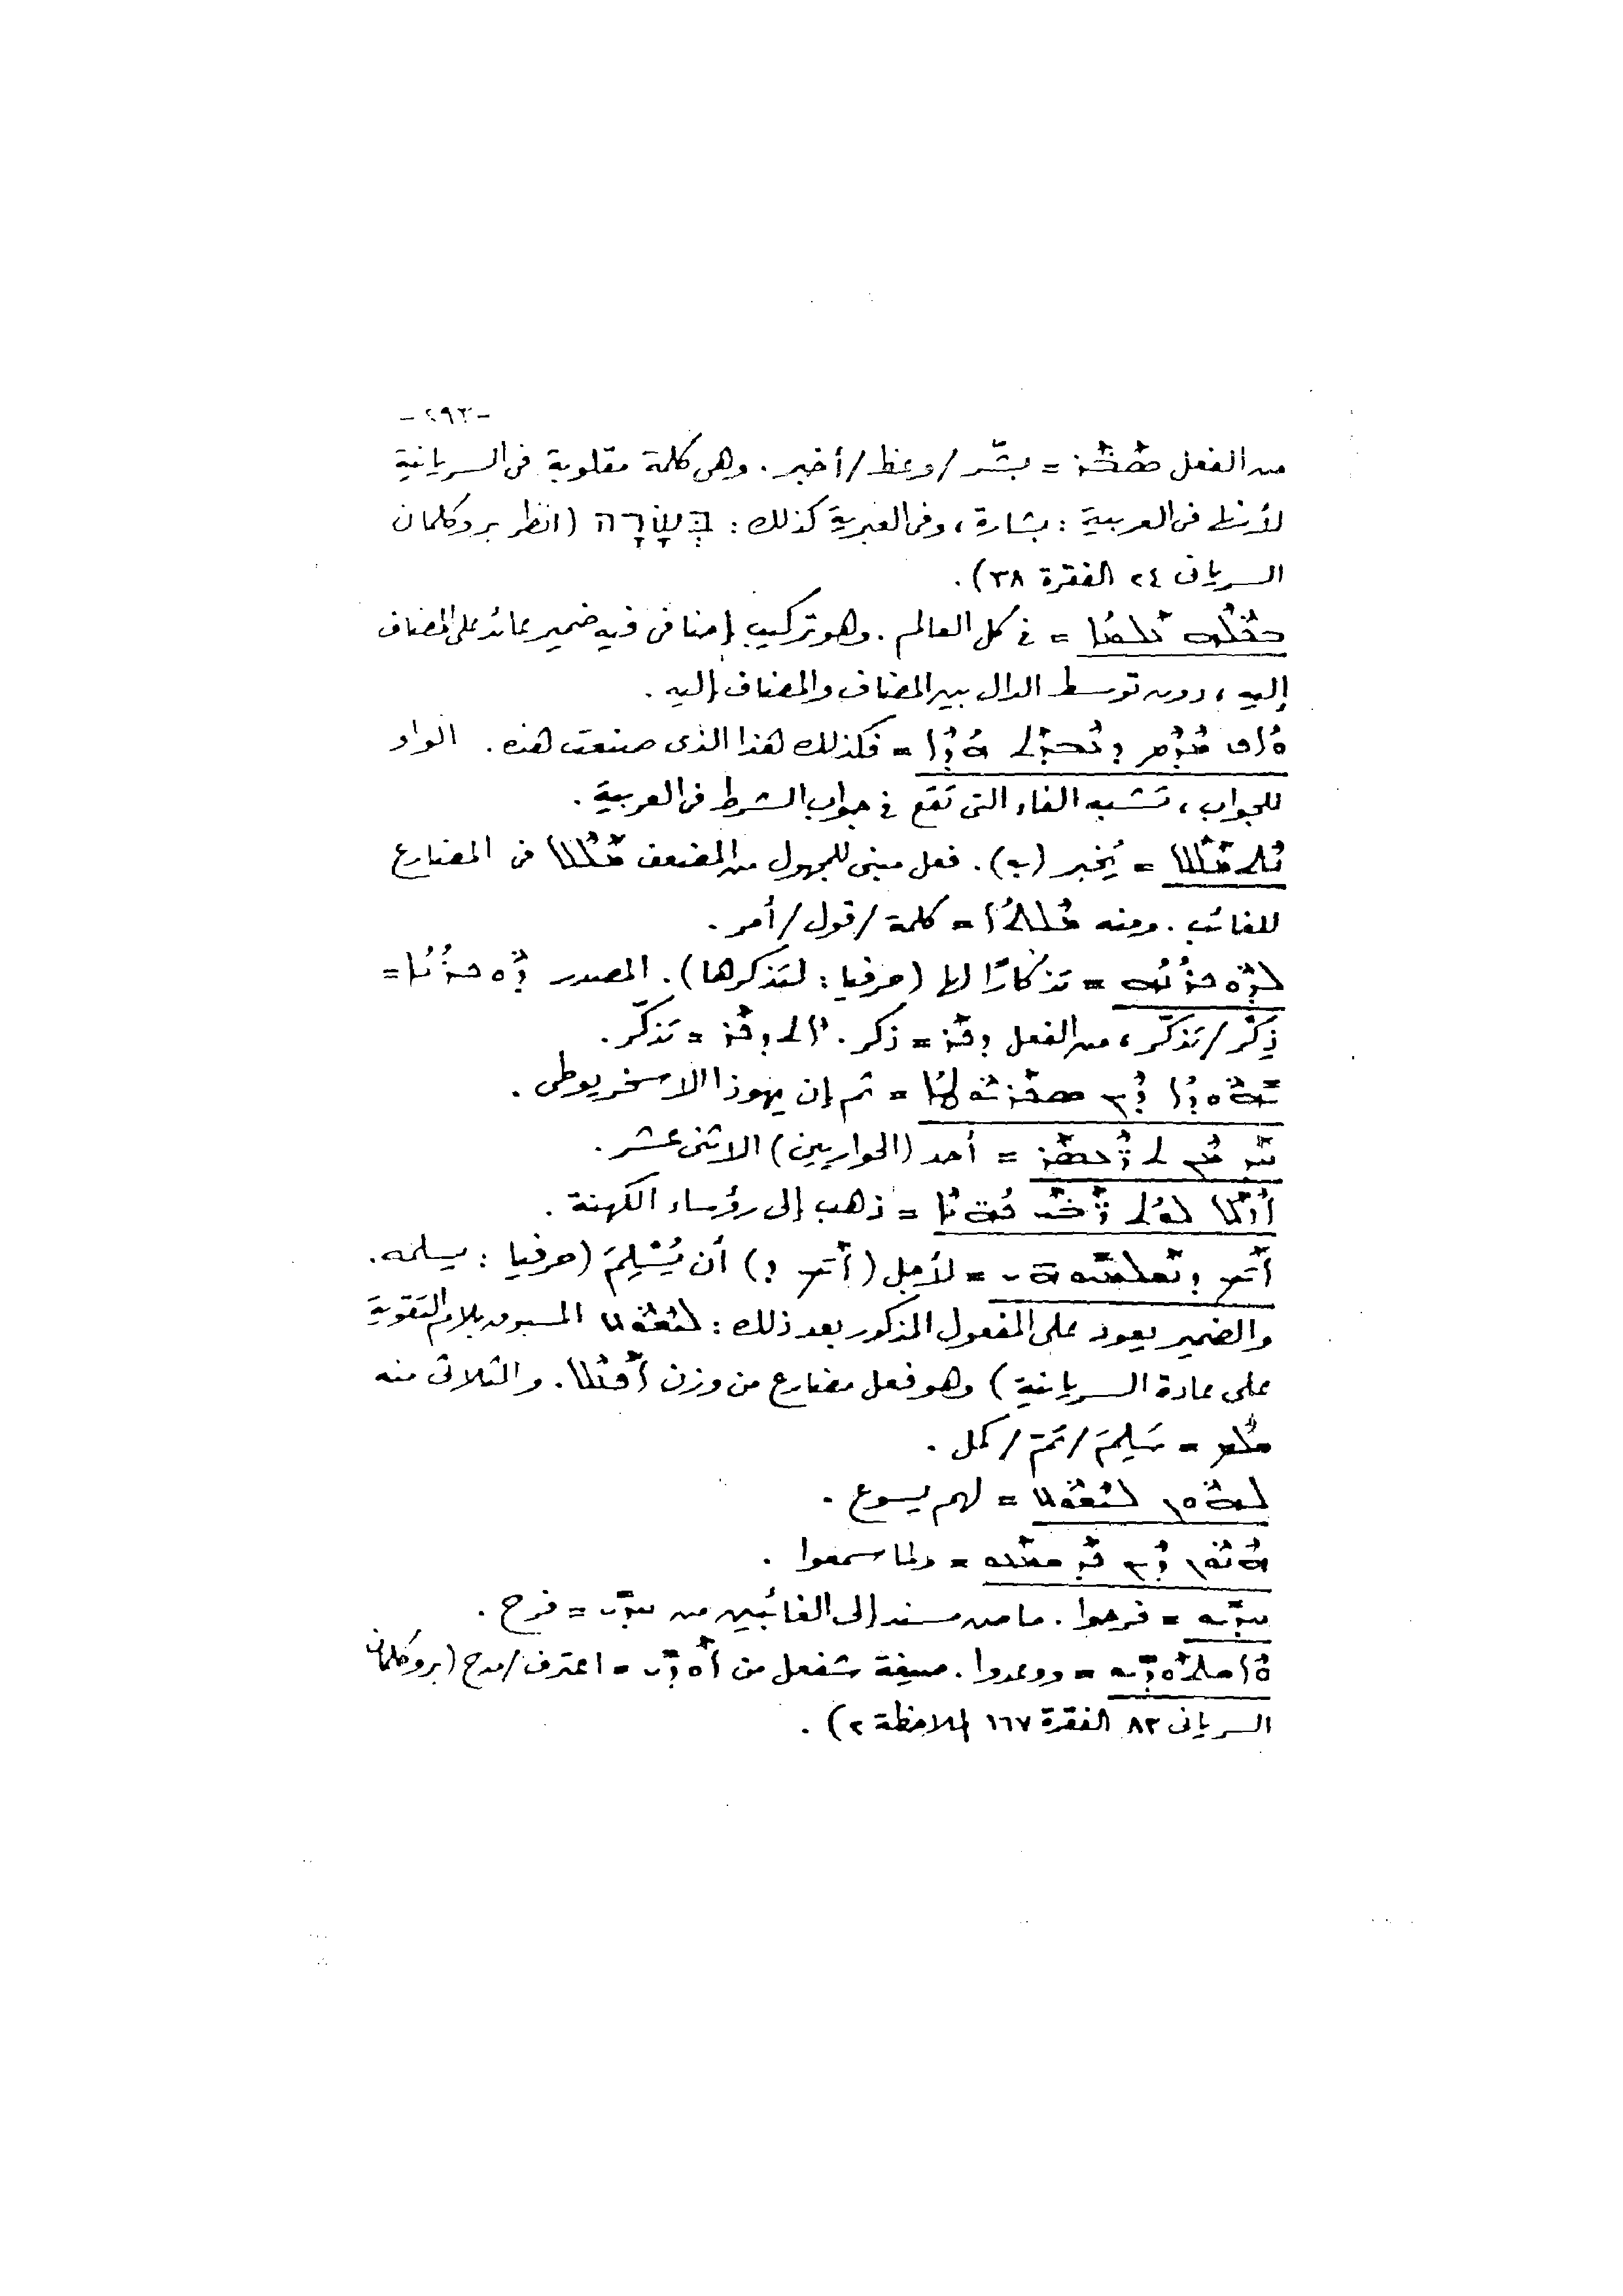 -٢٩٣-
من الفعل ܣܰܒܰܪ = بشّر / وعظ / أخبر . وهى كلمة مقلوبة فى السريانية
لأنها فى العربية : بشارة ، وفى العبرية كذلك : בְּשׂוֹרָה (انظر بروكلمان
السريانى ٢٤ الفقرة ٣٨) .
ܒܟܽܠܶܗ ܥܳܠܡܳܐ = فى كل العالم . وهو تركيب إضافى فيه ضمير عائد على المضاف
إليه ، دون توسط الدال بين المضاف والمضاف إليه .
ܘܳܐܦ ܡܶܕܶܡ ܕܥܶܒܕܰܬ ܗܳܕܶܐ = فكذلك هذا الذى صنعت هذه . الواو
للجواب ، تشبه الفاء التى تقع فى جواب الشرط فى العربية .
ܢܶܬܡܰܠܰܠ = يُخبر (به) . فعل مبنى للمجهول من المضعف ܡܰܠܶܠ فى المضارع
للغائب . ومنه ܡܶܠܬܳܐ = كلمة / قول / أمر .
ܠܕܽܘܟܪܳܢܳܗ = تذكارًا لها (حرفيا : لتذكرها) . المصدر ܕܽܘܟܪܳܢܳܐ =
ذِكْر / تَذكّر ، من الفعل ܕܟܰܪ = ذكر . ܐܶܬܕܟܰܪ = تذكّر .
ܝܺܗܽܘܕܳܐ ܕܶܝܢ ܣܟܰܪܝܽܘܛܳܐ = ثم إن يهوذا الاسخريوطى .
ܚܰܕ ܡܶܢ ܬܪܶܥܣܰܪ = أحد (الحواريين) الاثنى عشر .
ܐܶܙܰܠ ܠܘܳܬ ܪܰܒܰܝ ܟܳܗܢܶܐ = ذهب إلى رؤساء الكهنة .
ܐܰܝܟ ܕܢܰܫܠܡܺܝܘܗܝ = لأجل (ܐܰܝܟ ܕ) أن يُسْلِمَ (حرفيا : يسلمه .
والضمير يعود على المفعول المذكور بعد ذلك : ܠܝܶܫܽܘܥ المسبوق بلام التقوية
على عادة السريانية) وهو فعل مضارع من وزن ܐܰܦܥܶܠ . والثلاثى منه
ܫܠܶܡ = سَلِمَ / تَمّ / كمل .
ܠܗܽܘܢ ܠܝܶܫܽܘܥ = لهم يسوع .
ܗܶܢܽܘܢ ܕܶܝܢ ܟܰܕ ܫܡܰܥܘ = ولما سمعوا .
ܚܕܺܝܘ = فرحوا . ماض مسند إلى الغائبين من ܚܕܺܝ = فرح .
ܘܶܐܫܬܰܘܕܺܝܘ = ووعدوا . صيغة شفعل من ܐܰܘܕܺܝ = اعترف / مدح (بروكلمان
السريانى ٨٢ الفقرة ١٦٧ الملاحظة ٢) .